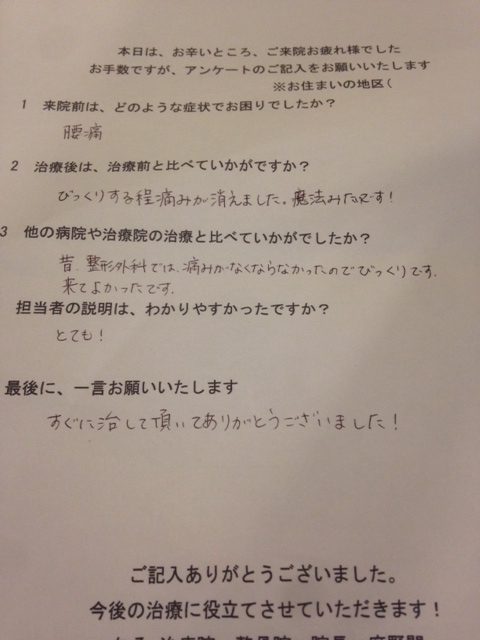 本日は、お辛いところ、ご来院お疲れ様でした
お手数ですが、アンケートのご記入をお願いいたします
※お住まいの地区(
1 来院前は、どのような症状でお困りでしたか?
腰痛
2 治療後は、治療前と比べていかがですか?
びっくりする程痛みが消えました。魔法みたいです!
3 他の病院や治療院の治療と比べていかがでしたか?
昔、整形外科では、痛みがなくならなかったのでびっくりです。
来てよかったです。
担当者の説明は、わかりやすかったですか?
とても!
最後に、一言お願いいたします
すぐに治して頂いてありがとうございました!
ご記入ありがとうございました。
今後の治療に役立てさせていただきます!